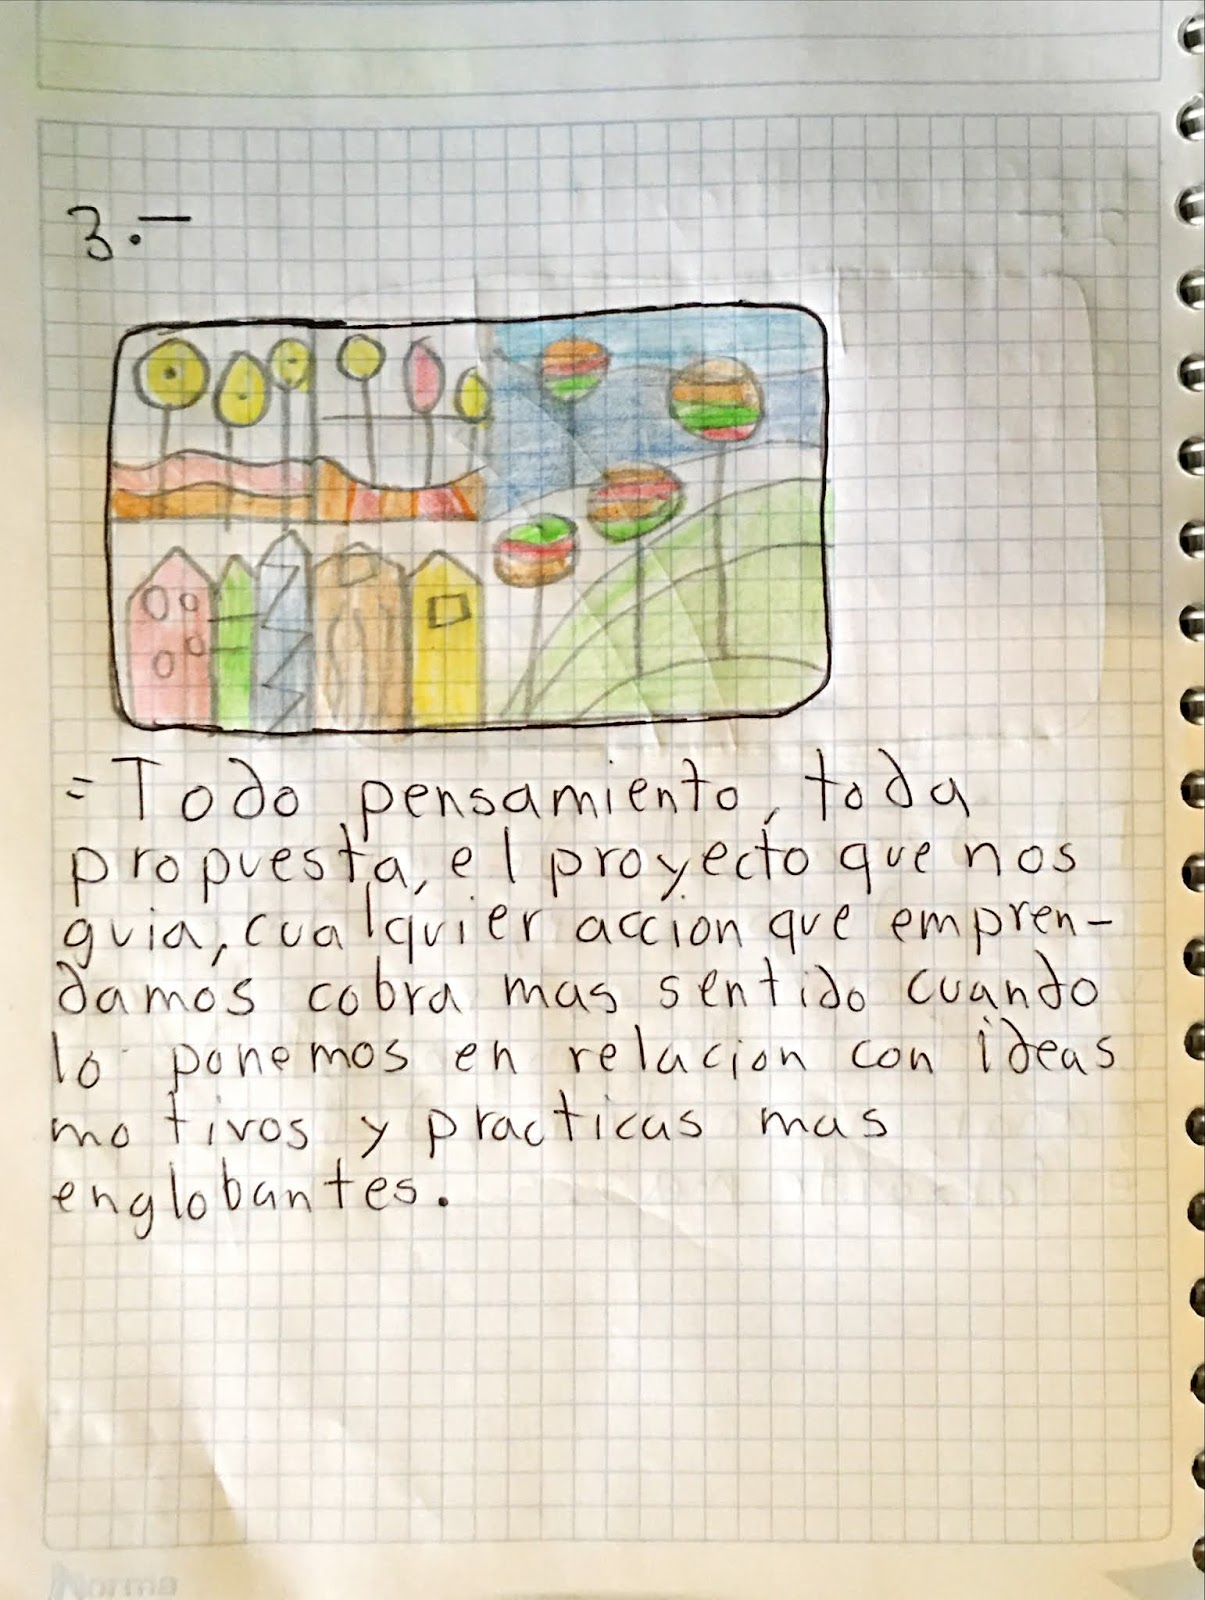 3.-
= Todo pensamiento, toda
propuesta, el proyecto que nos
guia, cualquier accion que empren-
damos cobra mas sentido cuando
lo ponemos en relacion con ideas
motivos y practicas mas
englobantes.
Norma